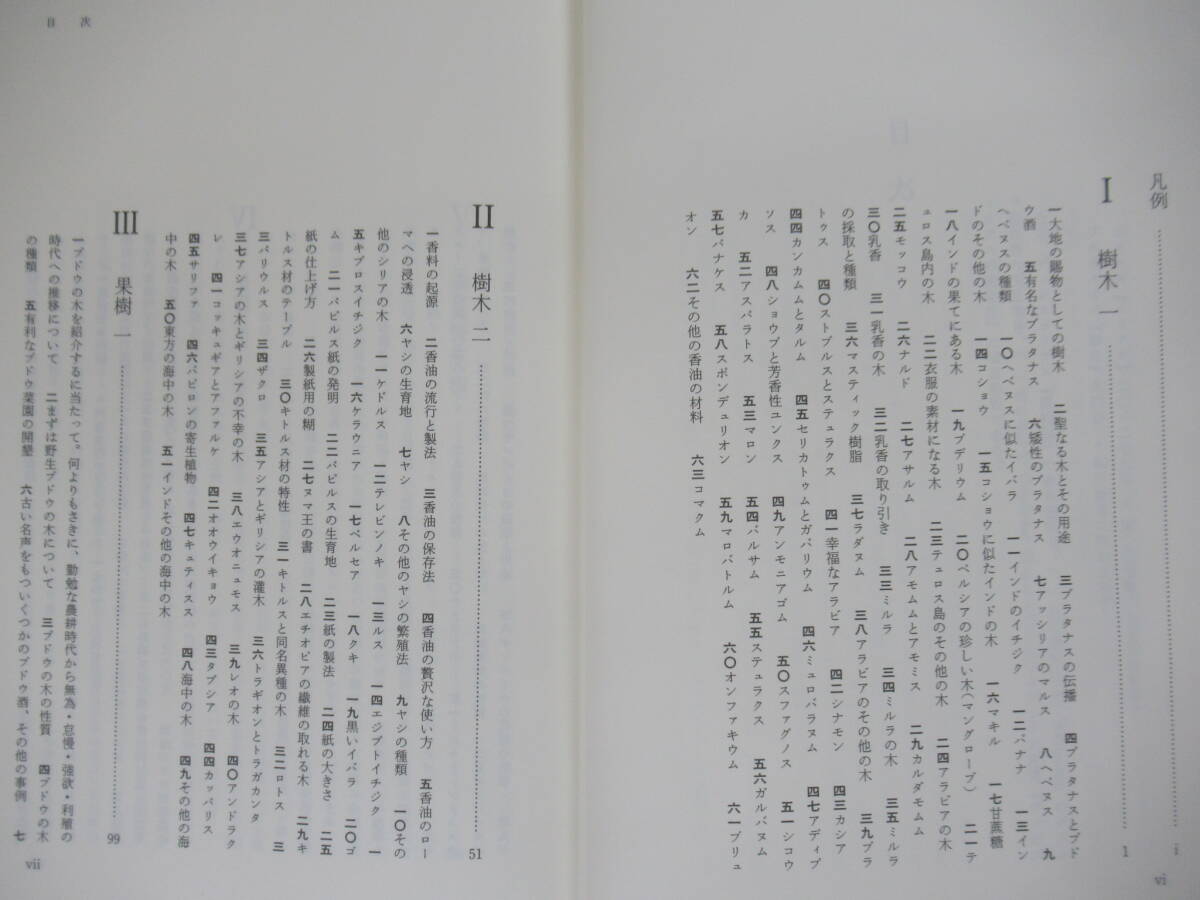 凡例 i
I 樹木 一 1
一大地の賜物としての樹木 二聖なる木とその用途 三プラタナスの伝播 四プラタナスとブド
ウ酒 五有名なプラタナス 六矮性のプラタナス 七アッシリアのマルス 八ヘベヌス 九
ヘベヌスの種類 一〇ヘベヌスに似たイバラ 一一インドのイチジク 一二バナナ 一三イン
ドのその他の木 一四コショウ 一五コショウに似たインドの木 一六マキル 一七甘蔗糖
一八インドの果てにある木 一九ブデリウム 二〇ペルシアの珍しい木(マングローブ) 二一テ
ュロス島内の木 二二衣服の素材になる木 二三テュロス島のその他の木 二四アラビアの木
二五モッコウ 二六ナルド 二七アサルム 二八アモムムとアモミス 二九カルダモムム
三〇乳香 三一乳香の木 三二乳香の取り引き 三三ミルラ 三四ミルラの木 三五ミルラ
の採取と種類 三六マスティック樹脂 三七ラダヌム 三八アラビアのその他の木 三九ブラ
トゥス 四〇ストブルスとステュラクス 四一幸福なアラビア 四二シナモン 四三カシア
四四カンカムムとタルム 四五セリカトゥムとガバリウム 四六ミュロバラヌム 四七アディプ
ソス 四八ショウブと芳香性ユンクス 四九アンモニアゴム 五〇スファグノス 五一シコウ
カ 五二アスパラトス 五三マロン 五四バルサム 五五ステュラクス 五六ガルバヌム
五七パナケス 五八スポンデュリオン 五九マロバトルム 六〇オンファキウム 六一ブリュ
オン 六二その他の香油の材料 六三コマクム
vi
目次
II 樹木 二 51
一香料の起源 二香油の流行と製法 三香油の保存法 四香油の贅沢な使い方 五香油のロー
マへの浸透 六ヤシの生育地 七ヤシ 八その他のヤシの繁殖法 九ヤシの種類 一〇その
他のシリアの木 一一ケドルス 一二テレビンノキ 一三ルス 一四エジプトイチジク 一
五キプロスイチジク 一六ケラウニア 一七ペルセア 一八クキ 一九黒いイバラ 二〇ゴ
ム 二一パピルス紙の発明 二二パピルスの生育地 二三紙の製法 二四紙の大きさ 二五
紙の仕上げ方 二六製紙用の糊 二七ヌマ王の書 二八エチオピアの繊維の取れる木 二九キ
トルス材のテーブル 三〇キトルス材の特性 三一キトルスと同名異種の木 三二ロトス 三
三パリウルス 三四ザクロ 三五アシアとギリシアの灌木 三六トラギオンとトラガカンタ
三七アシアの木とギリシアの不幸の木 三八エウオニュモス 三九レオの木 四〇アンドラク
レ 四一コッキュギアとアファルケ 四二オオウイキョウ 四三タプシア 四四カッパリス
四五サリファ 四六バビロンの寄生植物 四七キュティスス 四八海中の木 四九その他の海
中の木 五〇東方の海中の木 五一インドその他の海中の木
III 果樹 一 99
一ブドウの木を紹介するに当たって。何よりもさきに、勤勉な農耕時代から無為・怠慢・強欲・利殖の
時代への推移について 二まずは野生ブドウの木について 三ブドウの木の性質 四ブドウの木
の種類 五有利なブドウ菜園の開墾 六古い名声をもついくつかのブドウ酒、その他の事例 七
vii